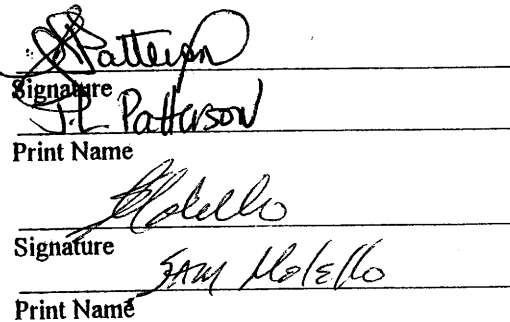 J Patterson
Signature
J.L. Patterson
Print Name
Signature
SAM Molello
Print Name